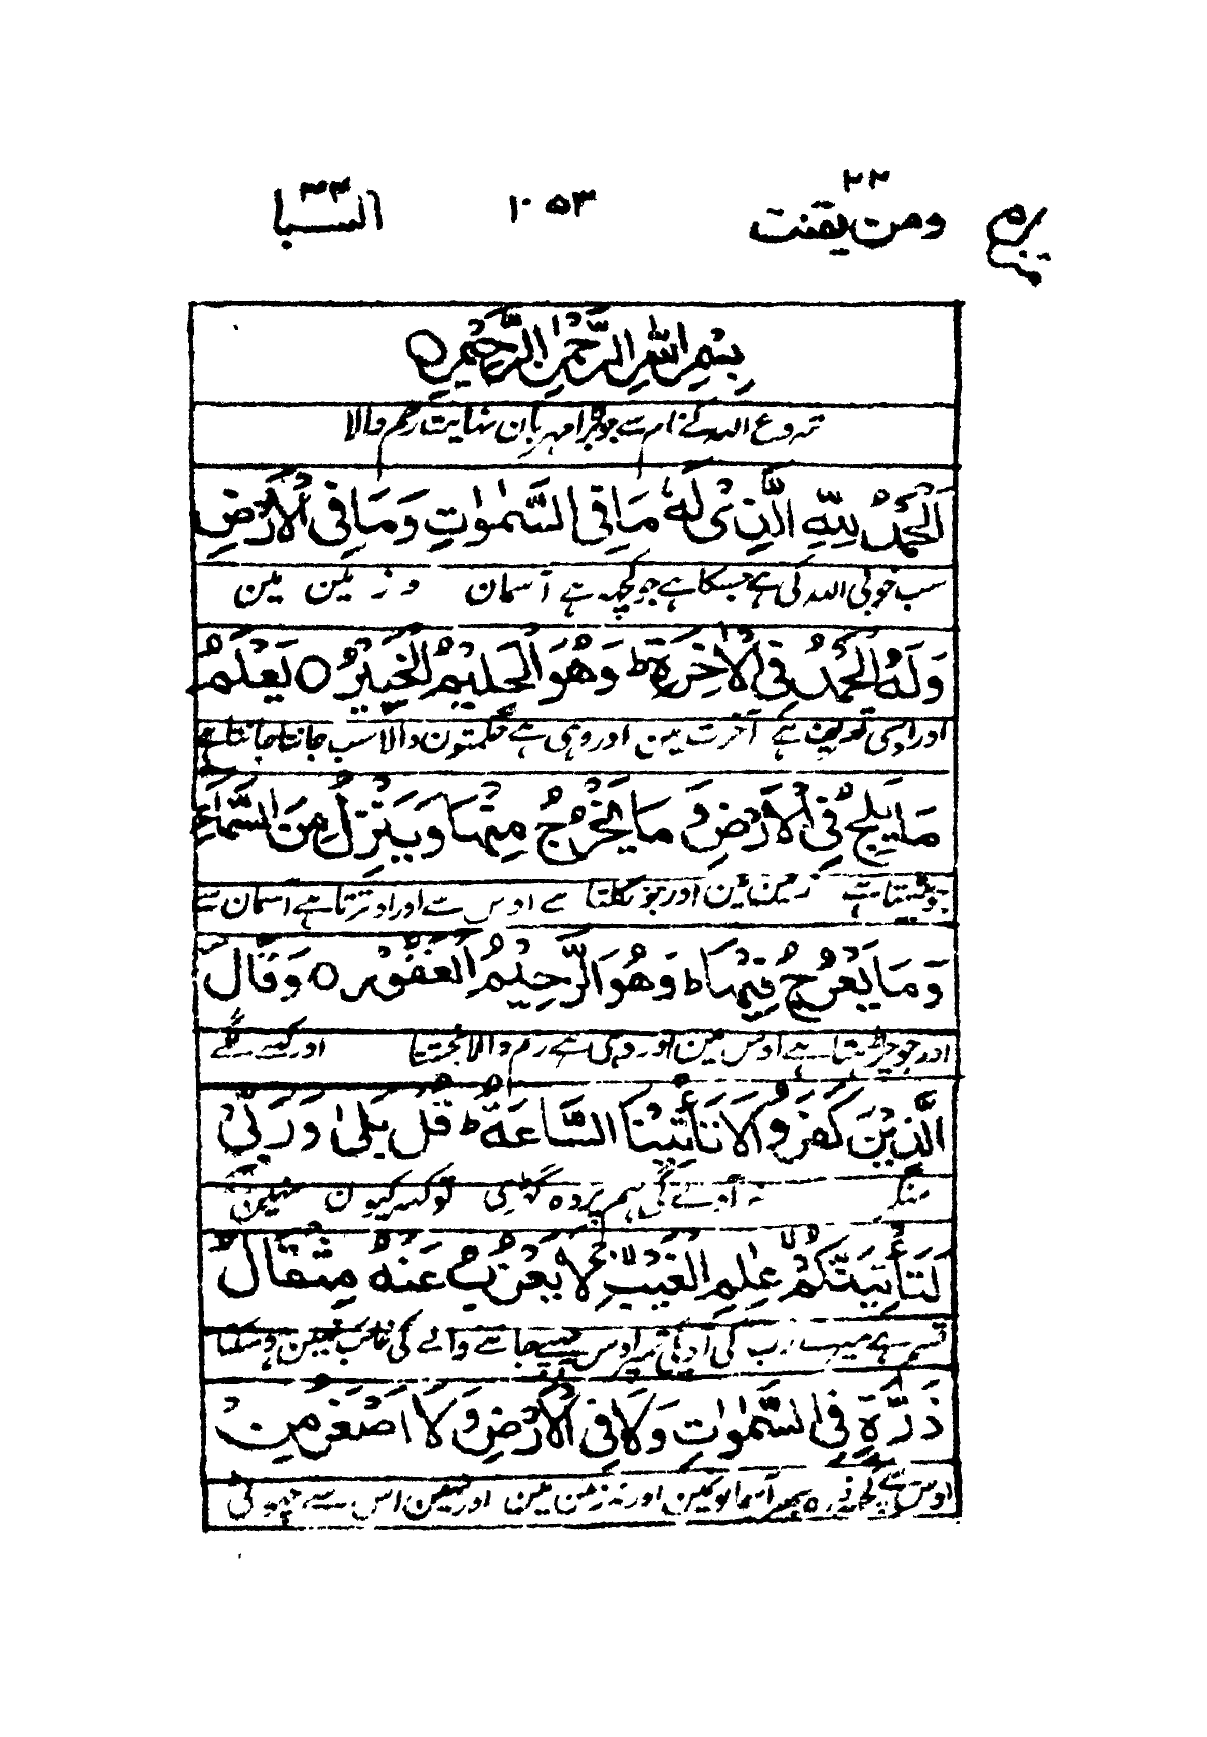 ومن یقنت ۲۲ ۱۰۵۳ السبا ۳۴
بِسْمِ اللّٰهِ الرَّحْمٰنِ الرَّحِیْمِ ○
شروع اللہ کے نام سے جو بڑا مہربان نہایت رحم والا
اَلْحَمْدُ لِلّٰهِ الَّذِیْ لَهٗ مَا فِی السَّمٰوٰتِ وَمَا فِی الْاَرْضِ
سب خوبی اللہ کی ہے جسکا ہے جو کچھ ہے آسمان و زمین مین
وَلَهُ الْحَمْدُ فِی الْاٰخِرَةِ ط وَهُوَ الْحَكِیْمُ الْخَبِیْرُ ○ یَعْلَمُ
اور اوسی تعریف ہے آخرت مین اور وہی ہے حکمتون والا سب جانتا جانتا ہے
مَا یَلِجُ فِی الْاَرْضِ وَ مَا یَخْرُجُ مِنْهَا وَ یَنْزِلُ مِنَ السَّمَآءِ
جو پیٹھتا ہے زمین مین اور جو نکلتا ہے اوس سے اور اوترتا ہے آسمان سے
وَ مَا یَعْرُجُ فِیْهَا ط وَهُوَ الرَّحِیْمُ الْغَفُوْرُ ○ وَ قَالَ
اور جو چڑھتا ہے اوس مین اور وہی ہے رحم والا بخشتا اور کہنے لگے
الَّذِیْنَ كَفَرُوْا لَا تَاْتِیْنَا السَّاعَةُ ط قُلْ بَلٰی وَ رَبِّیْ
منکر نہ آوے گی ہم پر وہ گھڑی تو کہہ کیون نہین
لَتَاْتِیَنَّكُمْ عٰلِمِ الْغَیْبِ لَا یَعْزُبُ عَنْهُ مِثْقَالُ
قسم ہے میرے رب کی آویگی تمپر اوس چھپے جاننے والے کی غائب نہین ہوسکتا
ذَرَّةٍ فِی السَّمٰوٰتِ وَلَا فِی الْاَرْضِ وَ لَا اَصْغَرُ مِنْ
اوس سے کچھ ذرہ بھر آسمانون مین اور نہ زمین مین اور نہین اس سے چھوٹی